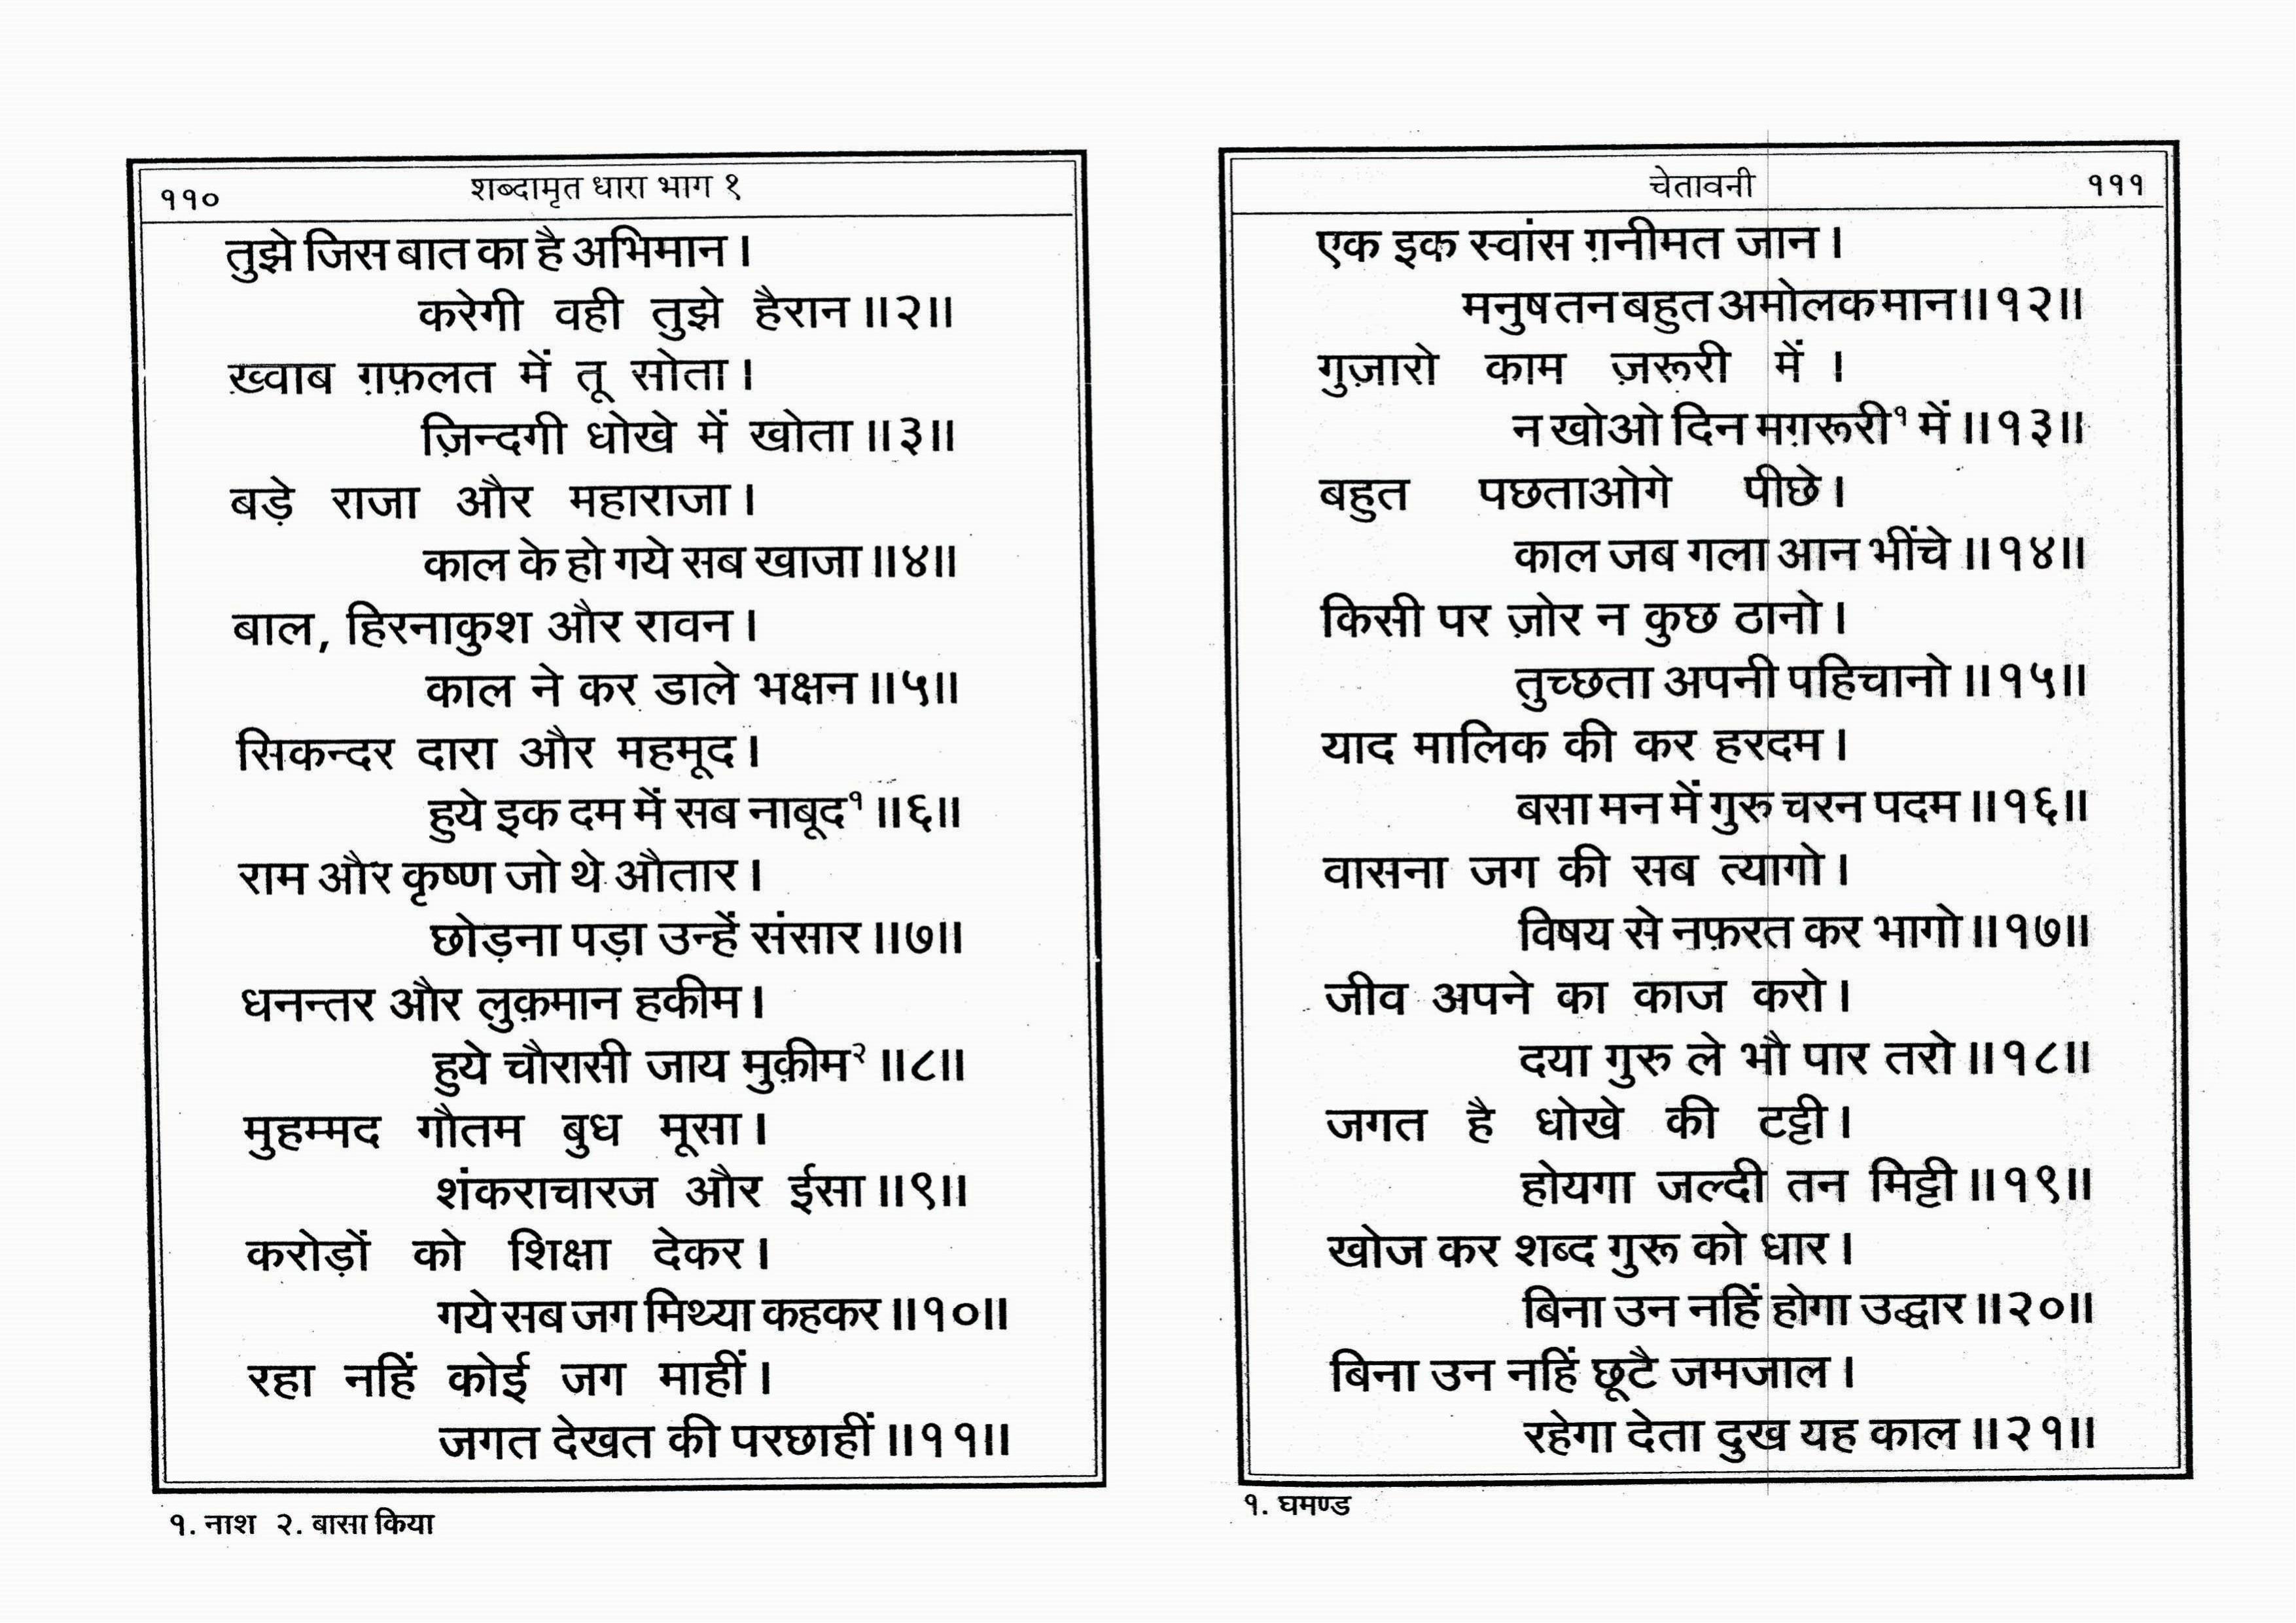 ११०
शब्दामृत धारा भाग १
तुझे जिस बात का है अभिमान ।
करेगी वही तुझे हैरान ॥२॥
ख़्वाब ग़फ़लत में तू सोता ।
ज़िन्दगी धोखे में खोता ॥३॥
बड़े राजा और महाराजा ।
काल के हो गये सब खाजा ॥४॥
बाल, हिरनाकुश और रावन ।
काल ने कर डाले भक्षन ॥५॥
सिकन्दर दारा और महमूद ।
हुये इक दम में सब नाबूद१ ॥६॥
राम और कृष्ण जो थे औतार ।
छोड़ना पड़ा उन्हें संसार ॥७॥
धनन्तर और लुक़मान हकीम ।
हुये चौरासी जाय मुक़ीम२ ॥८॥
मुहम्मद गौतम बुध मूसा ।
शंकराचारज और ईसा ॥९॥
करोड़ों को शिक्षा देकर ।
गये सब जग मिथ्या कहकर ॥१०॥
रहा नहिं कोई जग माहीं ।
जगत देखत की परछाहीं ॥११॥
१. नाश २. बासा किया
चेतावनी
१११
एक इक स्वांस ग़नीमत जान ।
मनुष तन बहुत अमोलक मान ॥१२॥
गुज़ारो काम ज़रूरी में ।
न खोओ दिन मग़रूरी१ में ॥१३॥
बहुत पछताओगे पीछे ।
काल जब गला आन भींचे ॥१४॥
किसी पर ज़ोर न कुछ ठानो ।
तुच्छता अपनी पहिचानो ॥१५॥
याद मालिक की कर हरदम ।
बसा मन में गुरु चरन पदम ॥१६॥
वासना जग की सब त्यागो ।
विषय से नफ़रत कर भागो ॥१७॥
जीव अपने का काज करो ।
दया गुरु ले भौ पार तरो ॥१८॥
जगत है धोखे की टट्टी ।
होयगा जल्दी तन मिट्टी ॥१९॥
खोज कर शब्द गुरू को धार ।
बिना उन नहिं होगा उद्धार ॥२०॥
बिना उन नहिं छूटै जमजाल ।
रहेगा देता दुख यह काल ॥२१॥
१. घमण्ड